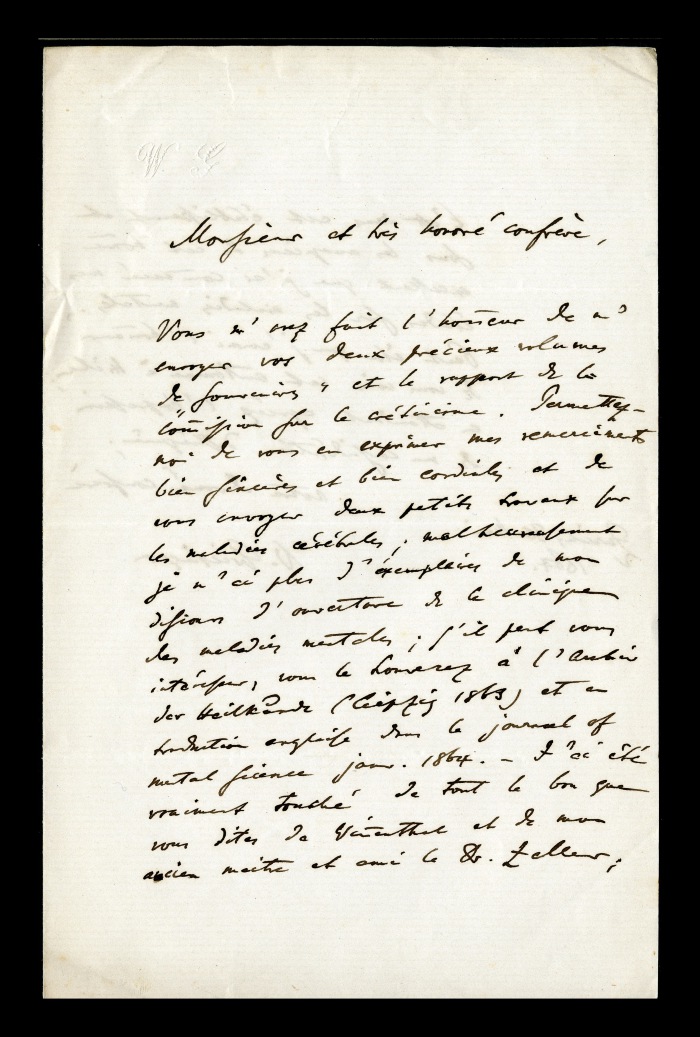 W. G
Monsieur et très honoré confrère,
Vous m'avez fait l'honneur de m'
envoyer vos deux précieux volumes
de Souvenirs, et le rapport de la
Commission sur le crétinisme. Permettez-
moi de vous en exprimer mes remerciements
bien sincères et bien cordiales et de
vous envoyer deux petits travaux sur
les maladies cérébrales ; malheureusement
je n'ai plus d'exemplaires de mon
discours d'ouverture de la clinique
des maladies mentales ; s'il peut vous
intéresser, vous le trouverez à l'Archiv
der Heilkunde (Leipzig 1863) et en
traduction anglaise dans le journal of
mental science janv. 1864. – J'ai été
vraiment touché de tout le bon que
vous dites de Winenthal et de mon
ancien maître et ami le Dr. Zeller ;